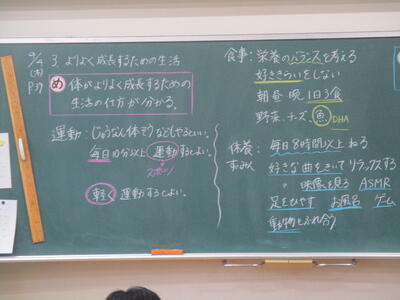 9/4
(木)
P.37
3. よりよく成長するための生活
め 体がよりよく成長するための
生活の仕方が分かる。
運動:じゅうなん体そうなどしするといい。
毎日10分以上運動するとよい。
スポーツ
軽く運動するとよい。
食事:栄養のバランスを考える
好ききらいをしない
朝昼晩 1日3食
野菜、チーズ、魚 DHA
休養:毎日8時間以上ねる
すいみん
好きな曲をきいてリラックスする
〃 映像を見る ASMR
足をひやす お風呂 ゲーム
動物とふれ合う